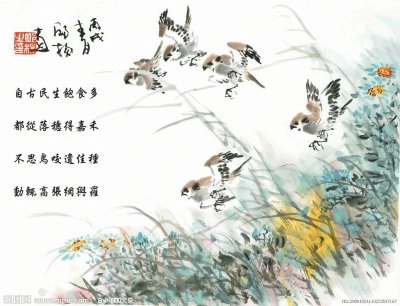 丙戌
自古民生飽食多
都從落穗得嘉禾
不思鳥咬遺佳種
動輒高張網與羅
昵图网